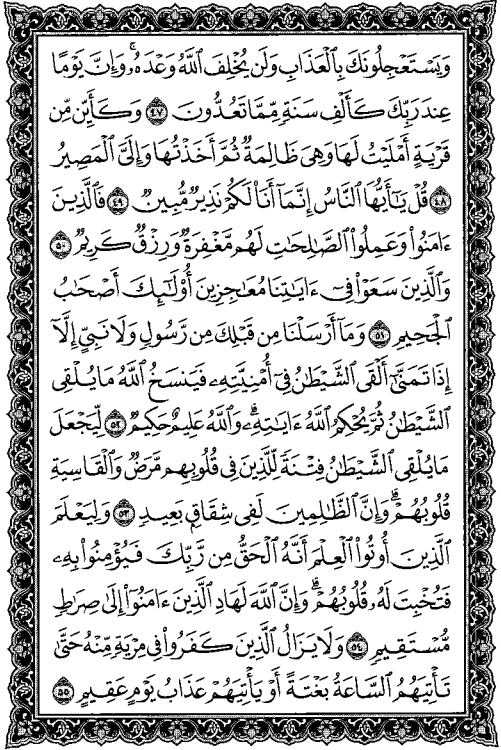 وَيَسْتَعْجِلُونَكَ بِٱلْعَذَابِ وَلَن يُخْلِفَ ٱللَّهُ وَعْدَهُۥ ۚ وَإِنَّ يَوْمًا
عِندَ رَبِّكَ كَأَلْفِ سَنَةٍ مِّمَّا تَعُدُّونَ ٤٧ وَكَأَيِّن مِّن
قَرْيَةٍ أَمْلَيْتُ لَهَا وَهِىَ ظَالِمَةٌ ثُمَّ أَخَذْتُهَا وَإِلَىَّ ٱلْمَصِيرُ
٤٨ قُلْ يَـٰٓأَيُّهَا ٱلنَّاسُ إِنَّمَآ أَنَا۠ لَكُمْ نَذِيرٌ مُّبِينٌ ٤٩ فَٱلَّذِينَ
ءَامَنُوا۟ وَعَمِلُوا۟ ٱلصَّـٰلِحَـٰتِ لَهُم مَّغْفِرَةٌ وَرِزْقٌ كَرِيمٌ ٥٠
وَٱلَّذِينَ سَعَوْا۟ فِىٓ ءَايَـٰتِنَا مُعَـٰجِزِينَ أُو۟لَـٰٓئِكَ أَصْحَـٰبُ
ٱلْجَحِيمِ ٥١ وَمَآ أَرْسَلْنَا مِن قَبْلِكَ مِن رَّسُولٍ وَلَا نَبِىٍّ إِلَّآ
إِذَا تَمَنَّىٰٓ أَلْقَى ٱلشَّيْطَـٰنُ فِىٓ أُمْنِيَّتِهِۦ فَيَنسَخُ ٱللَّهُ مَا يُلْقِى
ٱلشَّيْطَـٰنُ ثُمَّ يُحْكِمُ ٱللَّهُ ءَايَـٰتِهِۦ ۗ وَٱللَّهُ عَلِيمٌ حَكِيمٌ ٥٢ لِّيَجْعَلَ
مَا يُلْقِى ٱلشَّيْطَـٰنُ فِتْنَةً لِّلَّذِينَ فِى قُلُوبِهِم مَّرَضٌ وَٱلْقَاسِيَةِ
قُلُوبُهُمْ ۗ وَإِنَّ ٱلظَّـٰلِمِينَ لَفِى شِقَاقٍۭ بَعِيدٍ ٥٣ وَلِيَعْلَمَ
ٱلَّذِينَ أُوتُوا۟ ٱلْعِلْمَ أَنَّهُ ٱلْحَقُّ مِن رَّبِّكَ فَيُؤْمِنُوا۟ بِهِۦ
فَتُخْبِتَ لَهُۥ قُلُوبُهُمْ ۗ وَإِنَّ ٱللَّهَ لَهَادِ ٱلَّذِينَ ءَامَنُوٓا۟ إِلَىٰ صِرَٰطٍ
مُّسْتَقِيمٍ ٥٤ وَلَا يَزَالُ ٱلَّذِينَ كَفَرُوا۟ فِى مِرْيَةٍ مِّنْهُ حَتَّىٰ
تَأْتِيَهُمُ ٱلسَّاعَةُ بَغْتَةً أَوْ يَأْتِيَهُمْ عَذَابُ يَوْمٍ عَقِيمٍ ٥٥